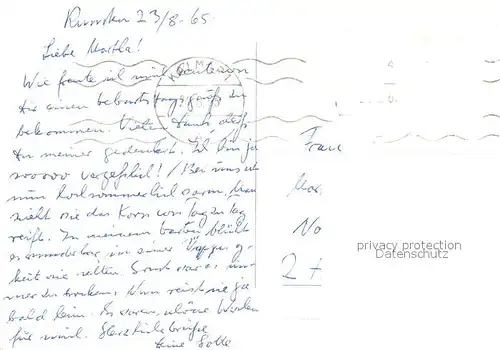 23/8-65
Liebe Martha!
Wie freute ich mich heute von
Dir einen Geburtstagsgruß zu
bekommen. Vielen Dank, daß
Du meiner gedenkst. Ich bin ja
sooooo vergeßlich! / Bei uns ist
nun hochsommerlich warm. Man
sieht wie das Korn von Tag zu Tag
reift. In meinem Garten blüht
es wunderbar, in einer Üppig-
keit wie selten. Sonst war es im-
mer zu trocken. Nun reist sie ja
bald heim. Es waren schöne Wochen
für mich. Herzliche Grüße
Deine Lotte
Frau
Mar
No
2 +
privacy protection
Datenschutz